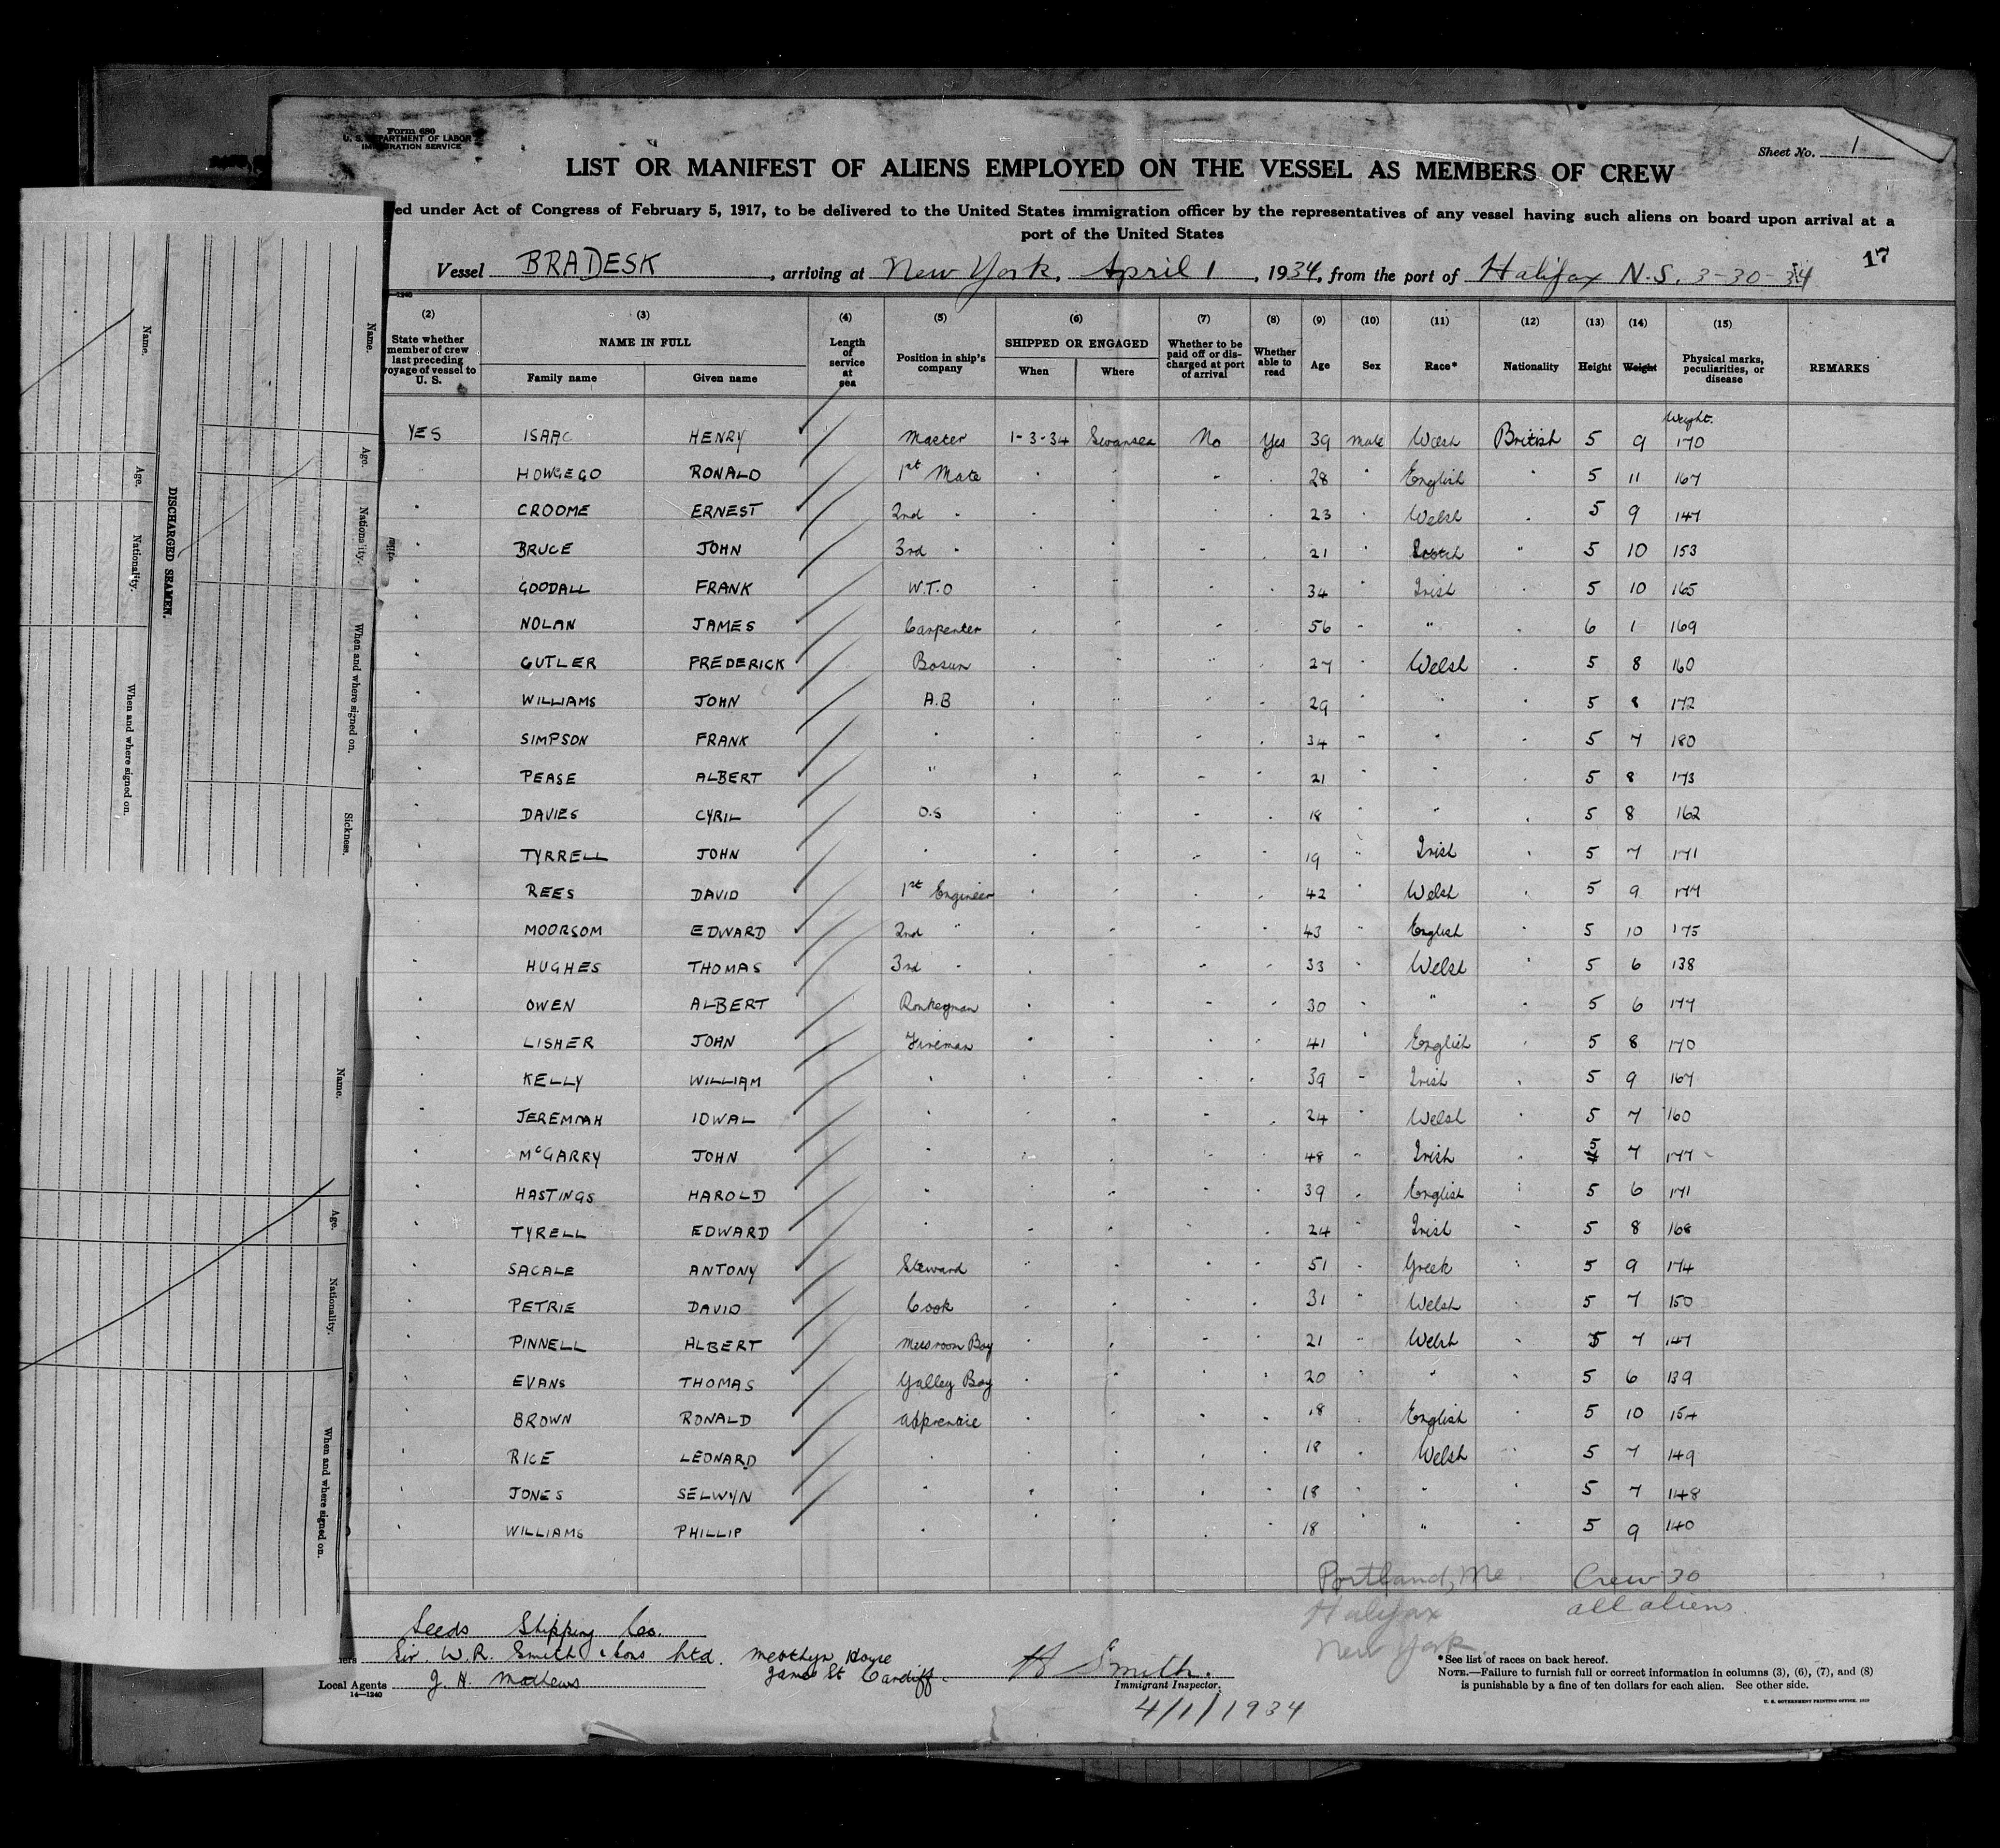 Form 680
U. S. DEPARTMENT OF LABOR
IMMIGRATION SERVICE
Sheet No. 1
LIST OR MANIFEST OF ALIENS EMPLOYED ON THE VESSEL AS MEMBERS OF CREW
ed under Act of Congress of February 5, 1917, to be delivered to the United States immigration officer by the representatives of any vessel having such aliens on board upon arrival at a
port of the United States
17
Vessel BRADESK, arriving at New York, April 1, 1934, from the port of Halifax N.S. 3-30-34
(2) (3) (4) (5) (6) (7) (8) (9) (10) (11) (12) (13) (14) (15)
State whether member of crew last preceding voyage of vessel to U. S. NAME IN FULL Family name Given name Length of service at sea Position in ship's company SHIPPED OR ENGAGED When Where Whether to be paid off or discharged at port of arrival Whether able to read Age Sex Race* Nationality Height Weight Physical marks, peculiarities, or disease REMARKS
Weight.
YES ISAAC HENRY Master 1-3-34 Swansea No Yes 39 male Welsh British 5 9 170
" HOWGEGO RONALD 1st Mate " " " " 28 " English " 5 11 167
" CROOME ERNEST 2nd " " " " " 23 " Welsh " 5 9 147
" BRUCE JOHN 3rd " " " " " 21 " Scotch " 5 10 153
" GOODALL FRANK W.T.O " " " " 34 " Irish " 5 10 165
" NOLAN JAMES Carpenter " " " " 56 " " " 6 1 169
" CUTLER FREDERICK Bosun " " " " 27 " Welsh " 5 8 160
" WILLIAMS JOHN A.B " " " " 29 " " " 5 8 172
" SIMPSON FRANK " " " " " 34 " " " 5 7 180
" PEASE ALBERT " " " " " 21 " " " 5 8 173
" DAVIES CYRIL O.S " " " " 18 " " " 5 8 162
" TYRRELL JOHN " " " " " 19 " Irish " 5 7 171
" REES DAVID 1st Engineer " " " " 42 " Welsh " 5 9 177
" MOORSOM EDWARD 2nd " " " " " 43 " English " 5 10 175
" HUGHES THOMAS 3rd " " " " " 33 " Welsh " 5 6 138
" OWEN ALBERT Donkeyman " " " " 30 " " " 5 6 177
" LISHER JOHN Fireman " " " " 41 " English " 5 8 170
" KELLY WILLIAM " " " " " 39 " Irish " 5 9 167
" JEREMIAH IDWAL " " " " " 24 " Welsh " 5 7 160
" McGARRY JOHN " " " " " 48 " Irish " 5 7 177
" HASTINGS HAROLD " " " " " 39 " English " 5 6 171
" TYRELL EDWARD " " " " " 24 " Irish " 5 8 168
" SACALE ANTONY Steward " " " " 51 " Greek " 5 9 174
" PETRIE DAVID Cook " " " " 31 " Welsh " 5 7 150
" PINNELL ALBERT Messroom Boy " " " " 21 " Welsh " 5 7 147
" EVANS THOMAS Galley Boy " " " " 20 " " " 5 6 139
" BROWN RONALD Apprentice " " " " 18 " English " 5 10 154
" RICE LEONARD " " " " " 18 " Welsh " 5 7 149
" JONES SELWYN " " " " " 18 " " " 5 7 148
" WILLIAMS PHILLIP " " " " " 18 " " " 5 9 140
Portland, Me. Crew 30
Halifax all aliens
New York
Leeds Shipping Co.
Sir. W.R. Smith & Sons Ltd. Merthyr House
James St Cardiff.
Local Agents J. H. Mathews
14—1240
H Smith.
Immigrant Inspector.
4/1/1934
*See list of races on back hereof.
NOTE.—Failure to furnish full or correct information in columns (3), (6), (7), and (8)
is punishable by a fine of ten dollars for each alien. See other side.
U. S. GOVERNMENT PRINTING OFFICE
DISCHARGED SEAMEN.
Name. Age. Nationality. When and where signed on.
Name. Age. Nationality. When and where signed on. Sickness.
Name. Age. Nationality. When and where signed on.